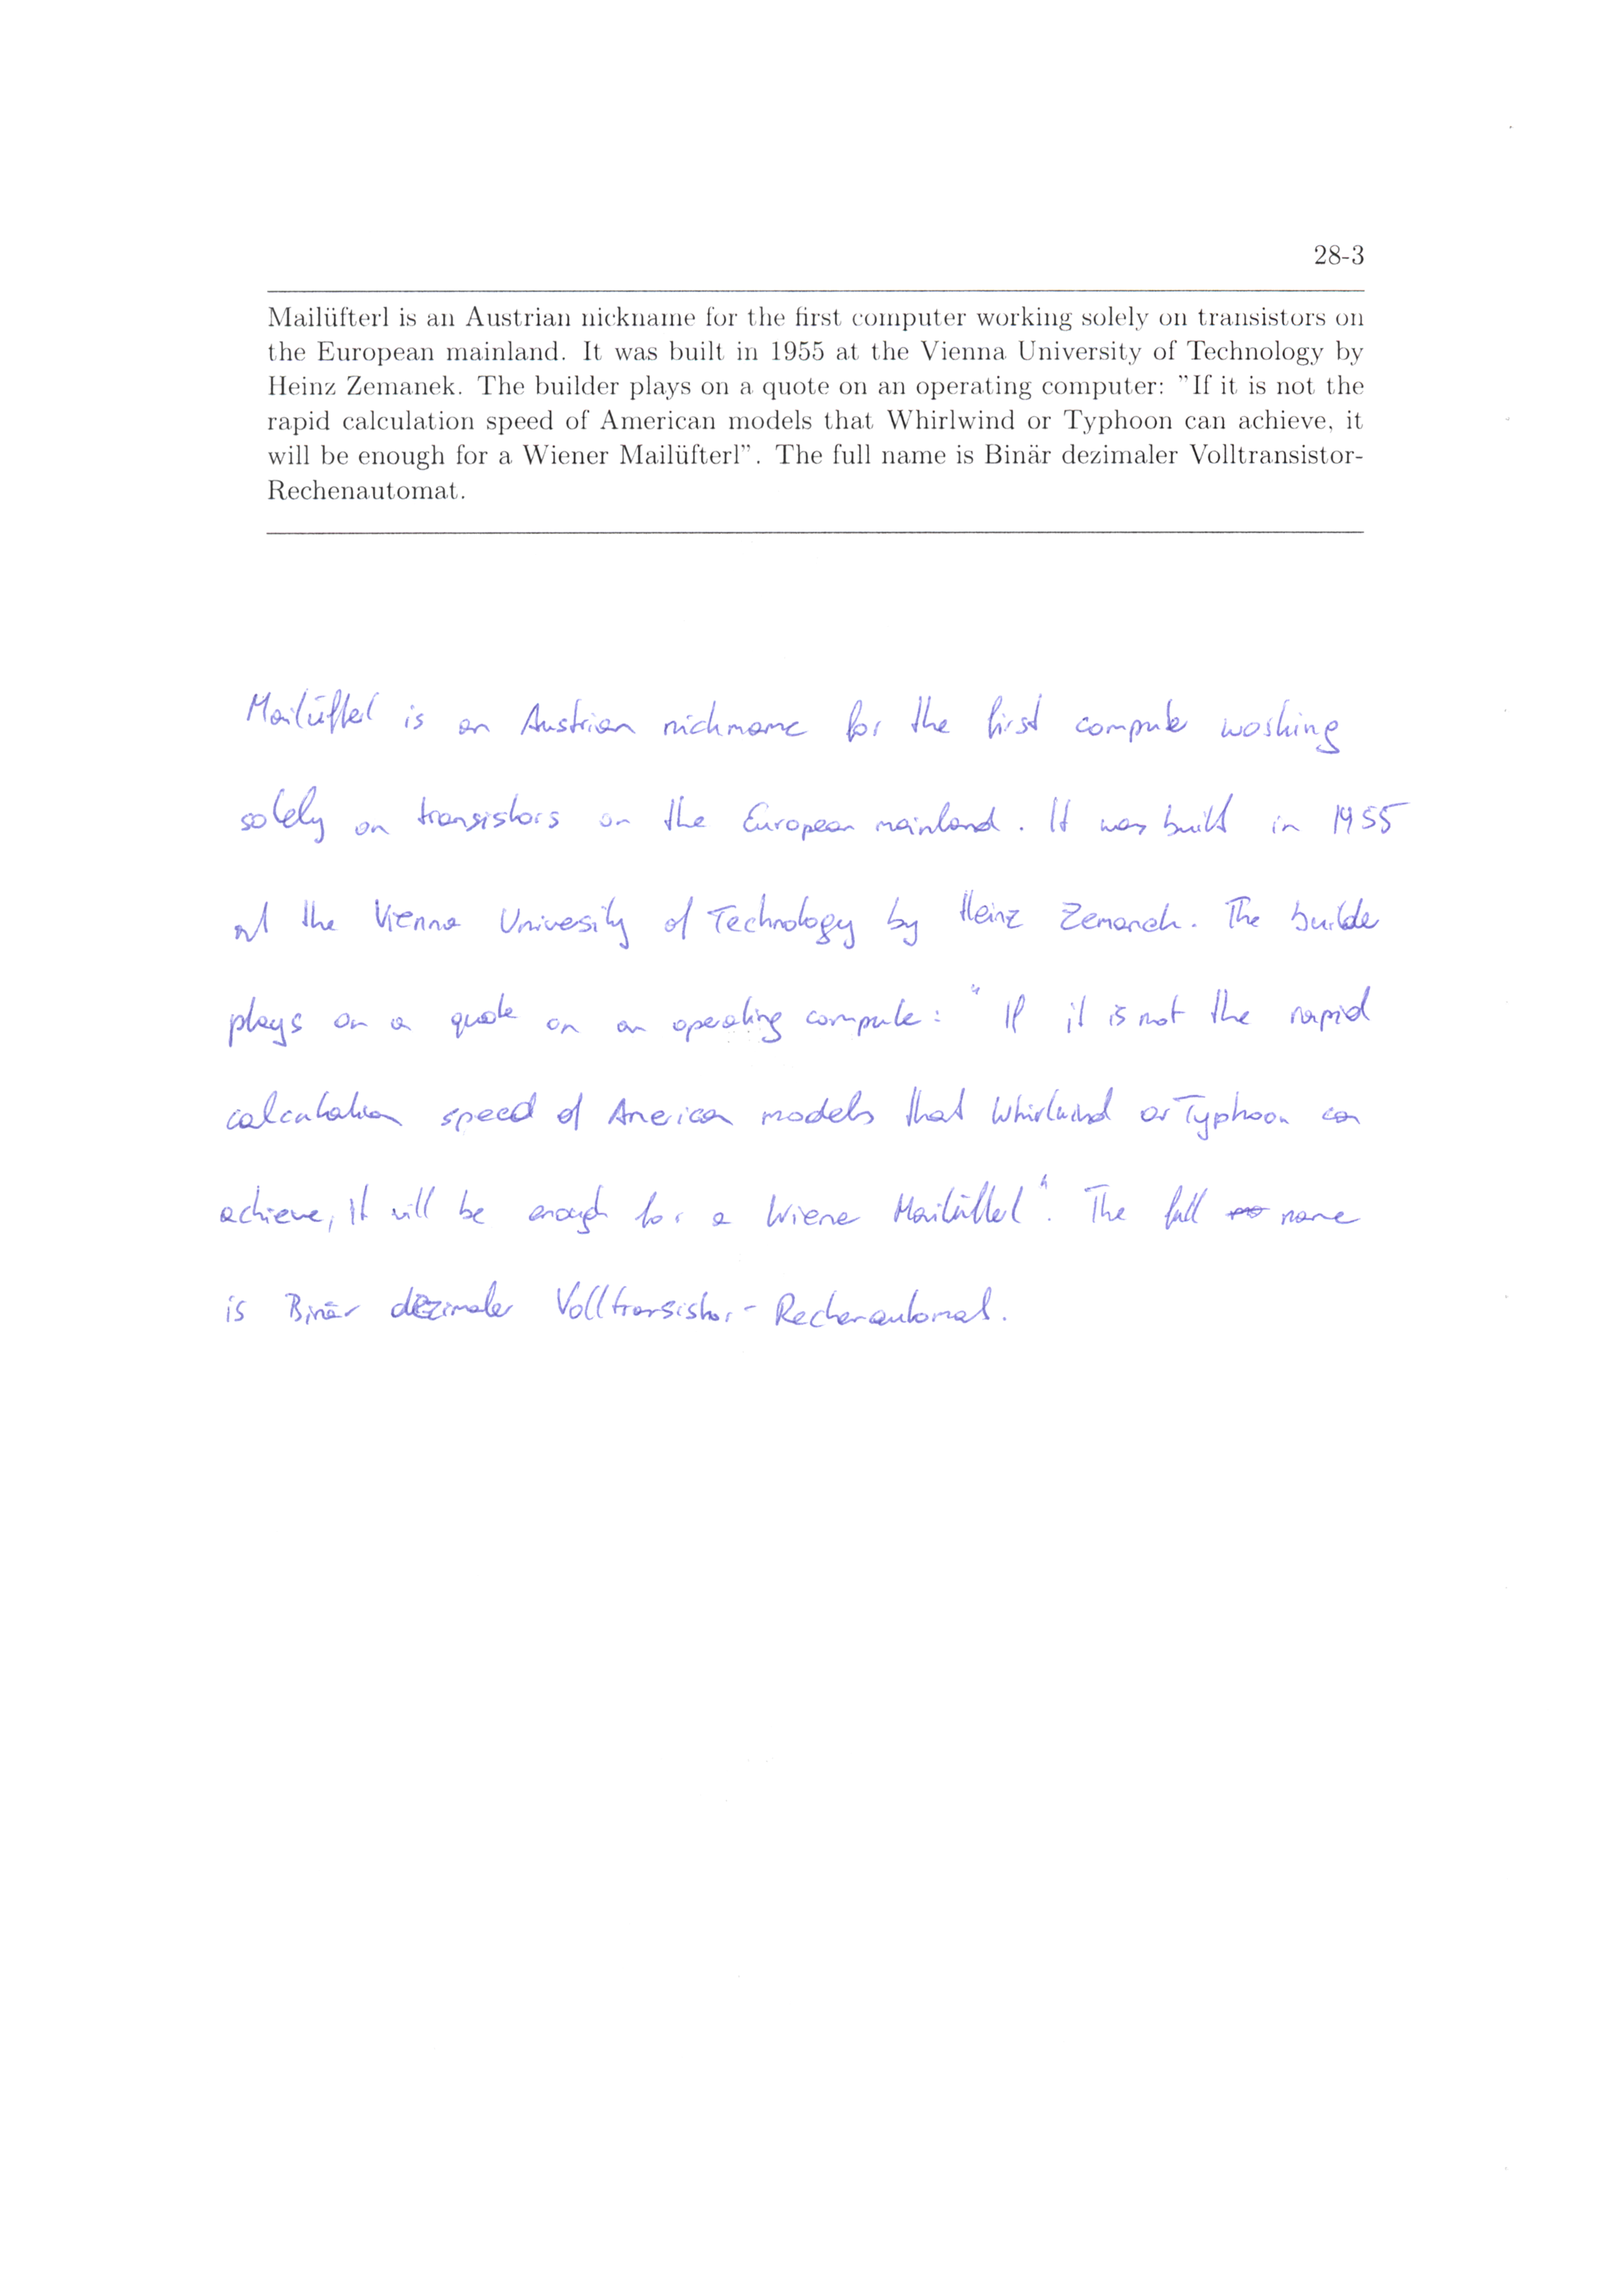 28-3
Mailüfterl is an Austrian nickname for the first computer working solely on transistors on
the European mainland. It was built in 1955 at the Vienna University of Technology by
Heinz Zemanek. The builder plays on a quote on an operating computer: "If it is not the
rapid calculation speed of American models that Whirlwind or Typhoon can achieve, it
will be enough for a Wiener Mailüfterl". The full name is Binär dezimaler Volltransistor-
Rechenautomat.
Mailüfterl is an Austrian nickname for the first computer working
solely on transistors on the European mainland. It was built in 1955
at the Vienna University of Technology by Heinz Zemanek. The builder
plays on a quote on an operating computer: "If it is not the rapid
calculation speed of American models that Whirlwind or Typhoon can
achieve, It will be enough for a Wiener Mailüfterl". The full name
is Binär dezimaler Volltransistor-Rechenautomat.